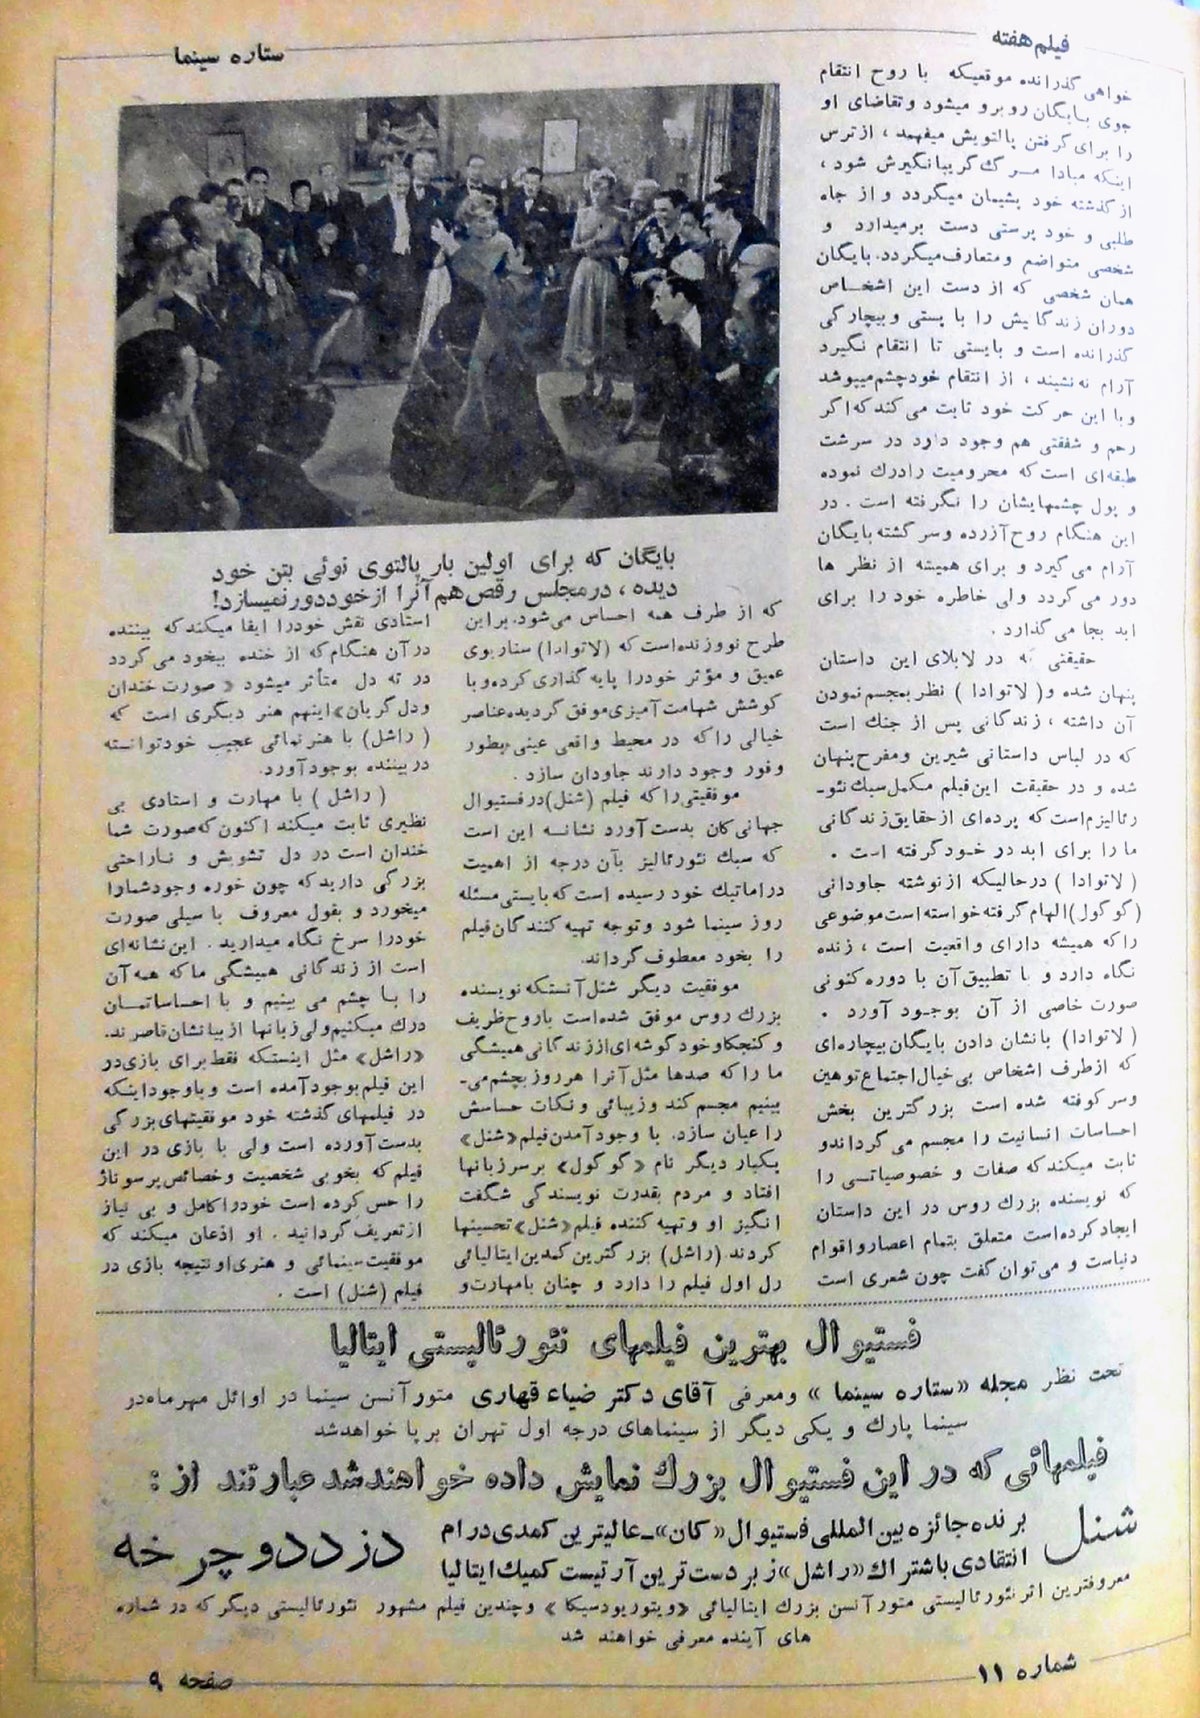 فیلم هفته
ستاره سینما
خواهی گذرانده موقعیکه با روح انتقام
جوی بایگان روبرو میشود و تقاضای او
را برای گرفتن پالتویش میفهمد ، از ترس
اینکه مبادا مرگ گریبانگیرش شود ،
از گذشته خود پشیمان میگردد و از جاه
طلبی و خود پرستی دست برمیدارد و
شخصی متواضع و متعارف میگردد. بایگان
همان شخصی که از دست این اشخاص
دوران زندگایش را با پستی و بیچارگی
گذرانده است و بایستی تا انتقام نگیرد
آرام نه نشیند ، از انتقام خود چشم میپوشد
و با این حرکت خود ثابت می کند که اگر
رحم و شفقتی هم وجود دارد در سرشت
طبقه‌ای است که محرومیت را درک نموده
و پول چشمهایشان را نگرفته است . در
این هنگام روح آزرده و سرگشته بایگان
آرام می گیرد و برای همیشه از نظر ها
دور می گردد ولی خاطره خود را برای
ابد بجا می گذارد .
حقیقتی که در لابلای این داستان
پنهان شده و ( لاتوادا ) نظر بمجسم نمودن
آن داشته ، زندگانی پس از جنگ است
که در لباس داستانی شیرین و مفرح پنهان
شده و در حقیقت این فیلم مکمل سبک نئو-
رئالیزم است که پرده‌ای از حقایق زندگانی
ما را برای ابد در خود گرفته است .
( لاتوادا ) در حالیکه از نوشته جاودانی
(گوگول) الهام گرفته خواسته است موضوعی
را که همیشه دارای واقعیت است ، زنده
نگاه دارد و با تطبیق آن با دوره کنونی
صورت خاصی از آن بوجود آورد .
( لاتوادا ) با نشان دادن بایگان بیچاره‌ای
که از طرف اشخاص بی خیال اجتماع توهین
و سرکوفته شده است بزرگترین بخش
احساسات انسانیت را مجسم می گرداند و
ثابت میکند که صفات و خصوصیاتی را
که نویسنده بزرگ روس در این داستان
ایجاد کرده است متعلق بتمام اعصار و اقوام
دنیاست و می توان گفت چون شعری است
بایگان که برای اولین بار پالتوی نوئی بتن خود
دیده ، در مجلس رقص هم آنرا از خود دور نمیسازد!
که از طرف همه احساس می شود. بر این
طرح نو وزنده است که (لاتوادا) سناریوی
عمیق و مؤثر خود را پایه گذاری کرده و با
کوشش شهامت آمیزی موفق گردیده عناصر
خیالی را که در محیط واقعی عینی بطور
وفور وجود دارند جاودان سازد .
موفقیتی را که فیلم (شنل) در فستیوال
جهانی کان بدست آورد نشانه این است
که سبک نئورئالیز بآن درجه از اهمیت
دراماتیک خود رسیده است که بایستی مسئله
روز سینما شود و توجه تهیه کنندگان فیلم
را بخود معطوف گرداند.
موفقیت دیگر شنل آنستکه نویسنده
بزرگ روس موفق شده است با روح ظریف
و کنجکاو خود گوشه‌ای از زندگانی همیشگی
ما را که صدها مثل آنرا هر روز بچشم می-
بینیم مجسم کند و زیبائی و نکات حساسش
را عیان سازد. با وجود آمدن فیلم «شنل»
یکبار دیگر نام «گوگول» بر سر زبانها
افتاد و مردم بقدرت نویسندگی شگفت
انگیز او و تهیه کننده فیلم «شنل» تحسینها
کردند (راشل) بزرگترین کمدین ایتالیائی
رل اول فیلم را دارد و چنان با مهارت و
استادی نقش خود را ایفا میکند که بیننده
در آن هنگام که از خنده بیخود می گردد
در ته دل متأثر میشود « صورت خندان
و دل گریان» اینهم هنر دیگری است که
( راشل) با هنر نمائی عجیب خود توانسته
در بیننده بوجود آورد.
( راشل ) با مهارت و استادی بی
نظیری ثابت میکند اکنون که صورت شما
خندان است در دل تشویش و ناراحتی
بزرگی دارید که چون خوره وجود شما را
میخورد و بقول معروف با سیلی صورت
خود را سرخ نگاه میدارید . این نشانه‌ای
است از زندگانی همیشگی ما که همه آن
را با چشم می بینیم و با احساساتمان
درک میکنیم ولی زبانها از بیانشان قاصرند.
«راشل» مثل اینستکه فقط برای بازی در
این فیلم بوجود آمده است و با وجود اینکه
در فیلمهای گذشته خود موفقیتهای بزرگی
بدست آورده است ولی با بازی در این
فیلم که بخوبی شخصیت و خصائص پرسوناژ
را حس کرده است خود را کامل و بی نیاز
از تعریف گردانید . او اذعان میکند که
موفقیت سینمائی و هنری او نتیجه بازی در
فیلم (شنل) است .
فستیوال بهترین فیلمهای نئورئالیستی ایتالیا
تحت نظر مجله «ستاره سینما» و معرفی آقای دکتر ضیاء قهاری متور آنسن سینما در اوائل مهرماه در
سینما پارک و یکی دیگر از سینماهای درجه اول تهران برپا خواهد شد
فیلمهائی که در این فستیوال بزرگ نمایش داده خواهند شد عبارتند از :
شنل
برنده جائزه بین المللی فستیوال «کان» – عالیترین کمدی درام
انتقادی باشتراک «راشل» زبردست ترین آرتیست کمیک ایتالیا
دزد دوچرخه
معروفترین اثر نئورئالیستی متور آنسن بزرگ ایتالیائی «ویتوریودسیکا» و چندین فیلم مشهور نئورئالیستی دیگر که در شماره
های آینده معرفی خواهند شد
شماره ۱۱
صفحه ۹